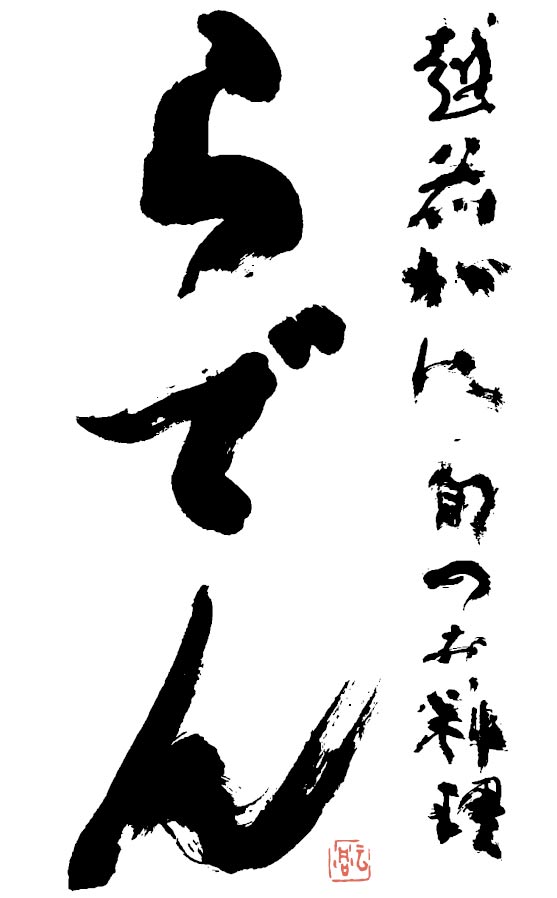 越前がに 旬のお料理
らでん